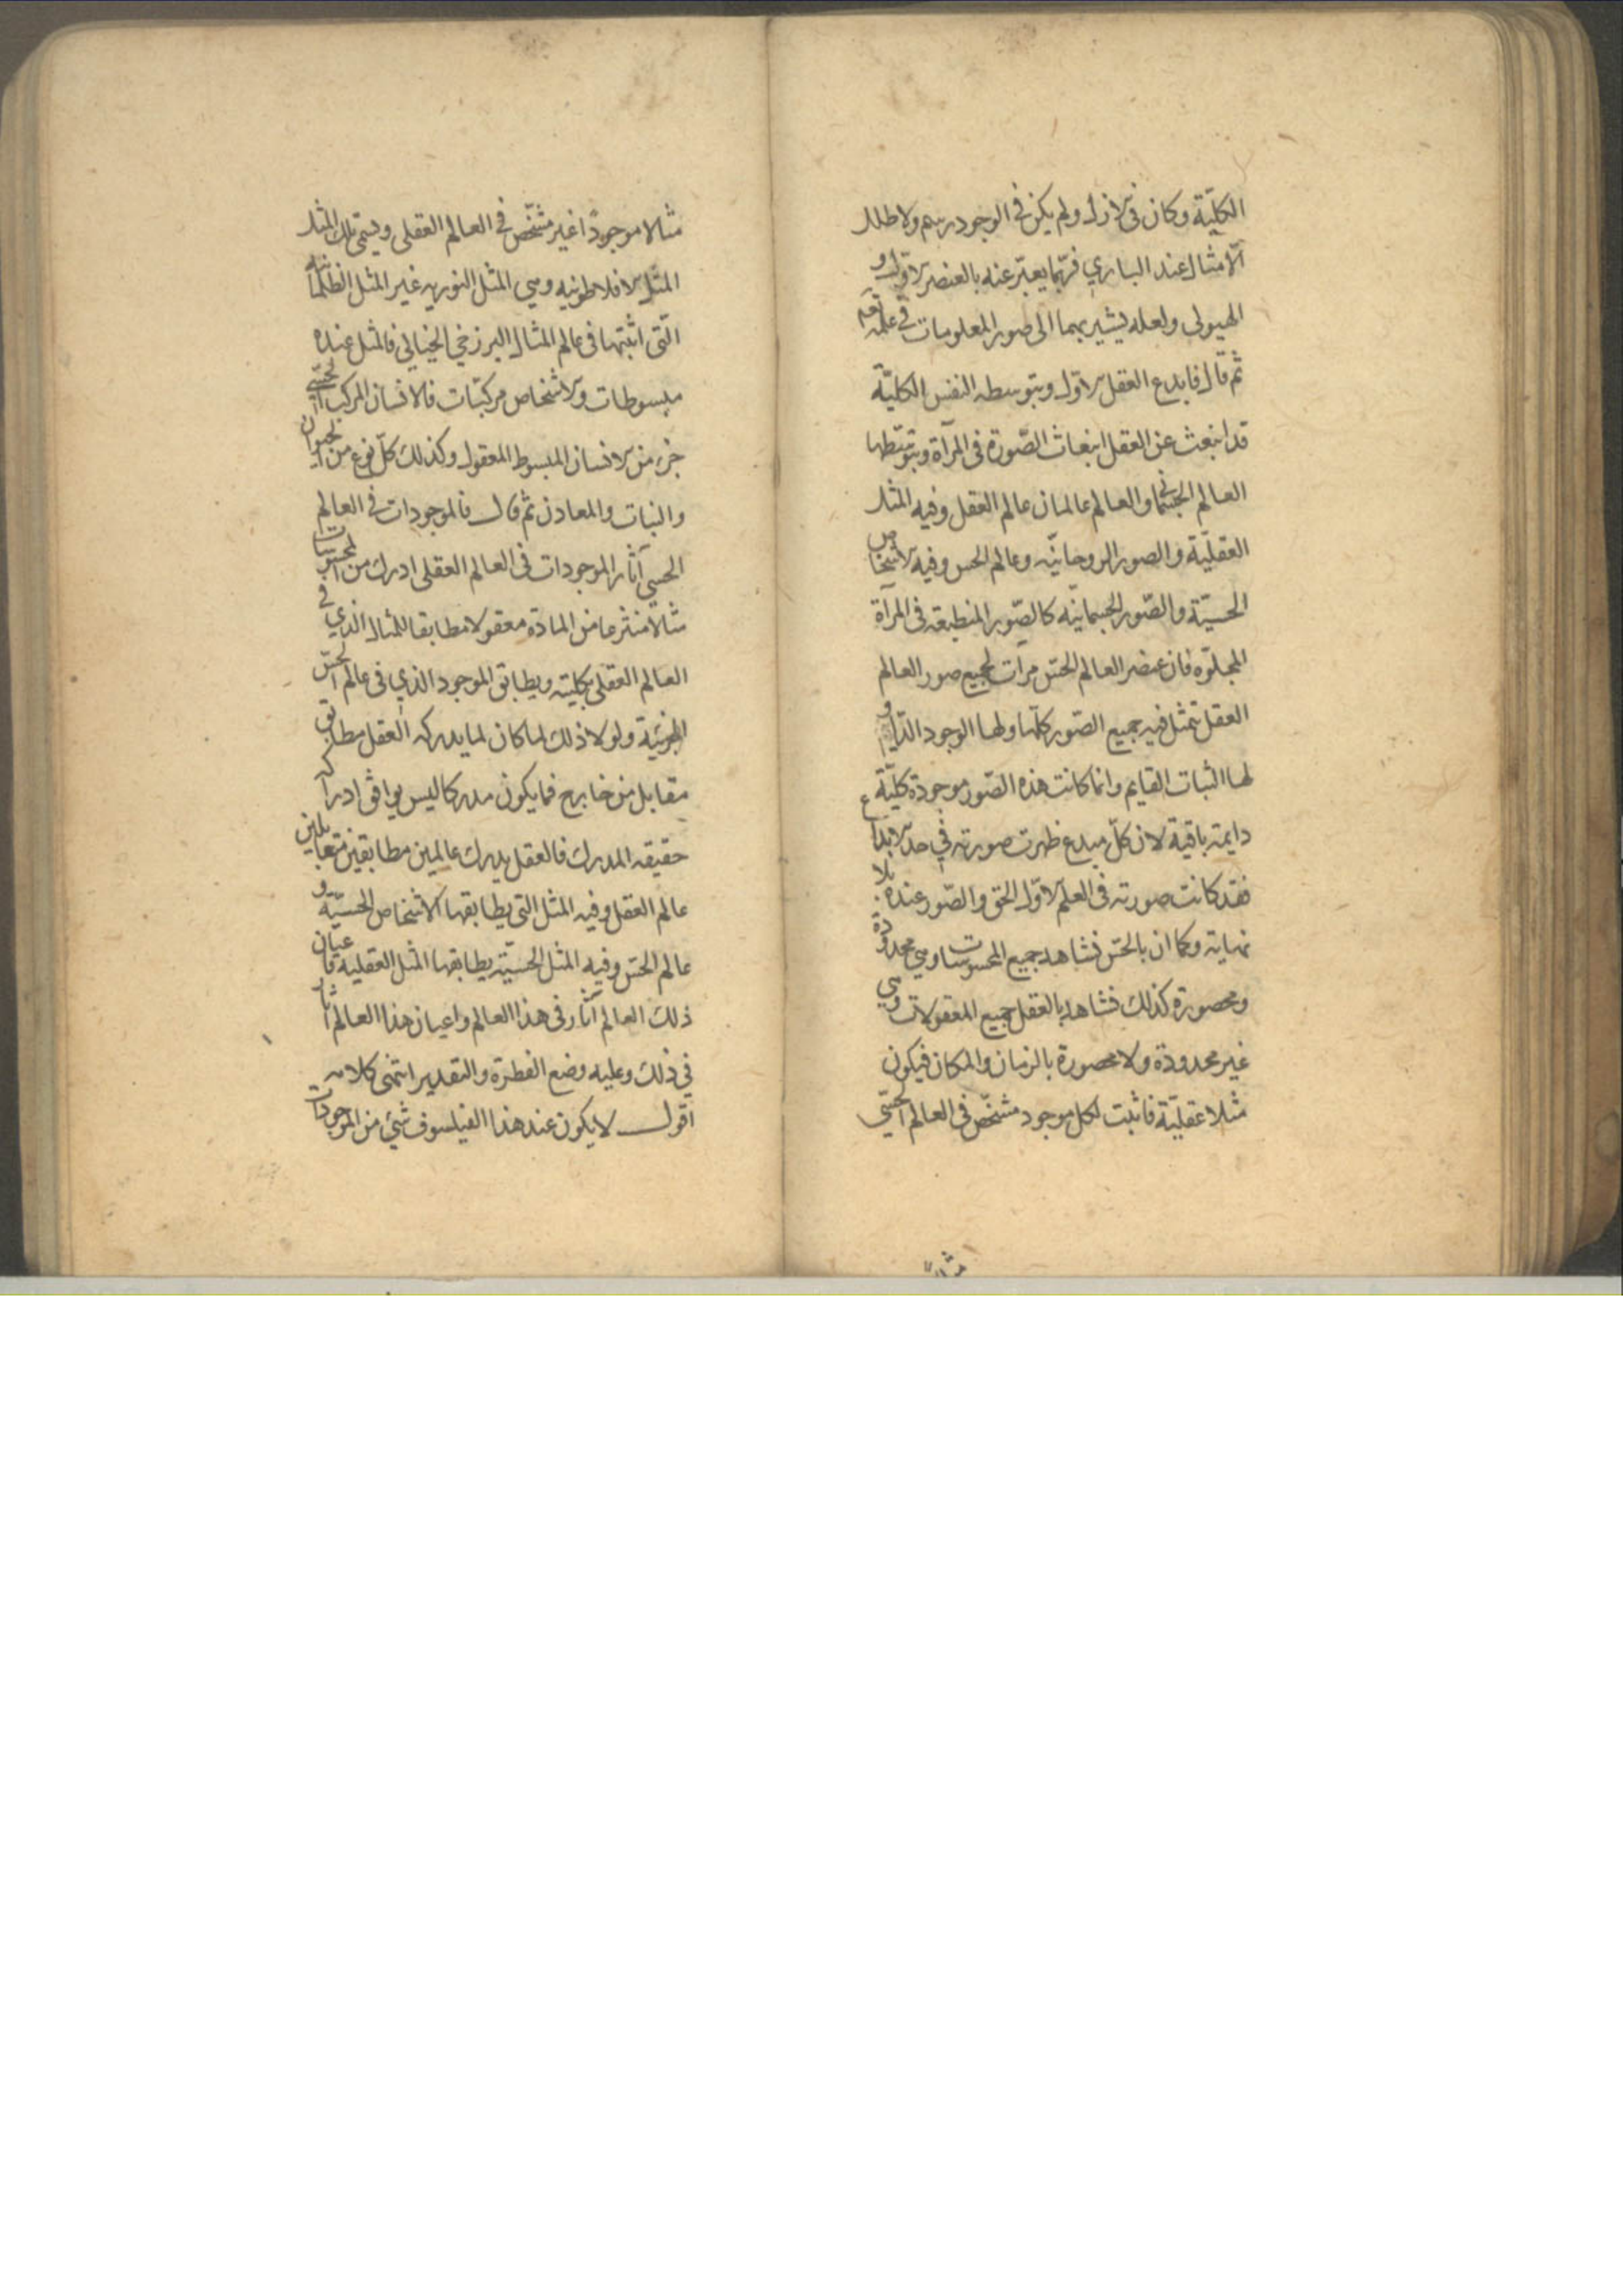 الكلیّة وكان فی الازل ولم یكن فی الوجود رسم ولا طلل
الّا مثال عند الباري فربّما یعبّر عنه بالعنصر الاوّل و
الهیولی ولعله یشیر بهما الی صور المعلومات فی علمه تعم
ثم قال فابدع العقل الاوّل وبتوسطه النفس الكلیّة
قد انبعث عن العقل انبعاث الصّورة فی المرآة وبتوسّطها
العالم الجسمانی والعالم عالمان عالم العقل وفیه المثل
العقلیّة والصور الروحانیّه وعالم الحس وفیه الاشخاص
الحسیّة والصّور الجسمانیّه كالصّور المنطبعه فی المرآة
المجلوّه فان عنصر العالم الحسّی مرآت لجمیع صور العالم
العقل تتمثل فیه جمیع الصّور كلّها ولها الوجود الدّایم و
لها الثبات القایم وانما كانت هذه الصّور موجودة كلیّة
دایمة باقیة لان كلّ مبدع ظهرت صورته فی حدّ الابداع
فقد كانت صورته فی العلم الاوّل الحق والصّور عنده بلا
نهایة وكما ان بالحسّ نشاهد جمیع المحسوسات وهی محدودة
ومحصورة كذلك نشاهد بالعقل جمیع المعقولات وهی
غیر محدودة ولا محصورة بالزمان والمكان فیكون
مثلا عقلیّة فاثبت لكل موجود مشخّص فی العالم الحسّی
مثلا موجودًا غیر مشخّص فی العالم العقلی ویسمّی تلك المثل
المثل الافلاطونیه وهی المثل النوریه غیر المثل الظلمانیه
الّتی اثبتها فی عالم المثال البرزخی الخیالی فالمثل عنده
مبسوطات والاشخاص مركبّات فالانسان المركب الحسّی
جزء من الانسان المبسوط المعقول وكذلك كلّ نوع من الحیوان
والنبات والمعادن ثم قال فالموجودات فی العالم
الحسی آثار الموجودات فی العالم العقلی ادرك من المحسوسات
مثالا منتزعا من المادّة معقولا مطابقا للمثال الذي فی
العالم العقلی بكلیته ویطابق الموجود الذي فی عالم الحسّ
الجزئیّة ولولا ذلك لما كان لما یدركه العقل مطابق
مقابل من خارج فما یكون مدركا لیس یوافق ادراكه
حقیقه المدرك فالعقل یدرك عالمین مطابقین متقابلین
عالم العقل وفیه المثل التی یطابقها الاشخاص الحسیّة و
عالم الحسّ وفیه المثل الحسیّة یطابقها المثل العقلیه فاعیان
ذلك العالم آثار فی هذا العالم واعیان هذا العالم آثار
فی ذلك وعلیه وضع الفطرة والتقدیر انتهی كلامه
اقول لا یكون عند هذا الفیلسوف شئ من الموجودات